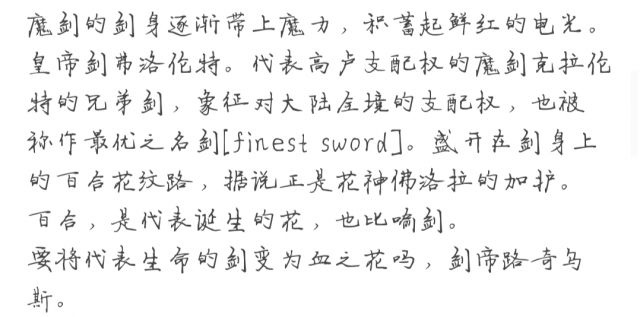 魔剑的剑身逐渐带上魔力，积蓄起鲜红的电光。
皇帝剑弗洛伦特。代表高卢支配权的魔剑克拉伦
特的兄弟剑，象征对大陆全境的支配权，也被
称作最优之名剑[finest sword]。盛开在剑身上
的百合花纹路，据说正是花神佛洛拉的加护。
百合，是代表诞生的花，也比喻剑。
要将代表生命的剑变为血之花吗，剑帝路奇乌
斯。